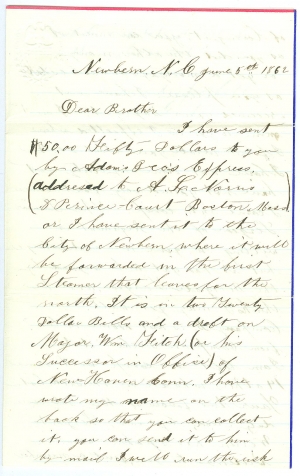 Newbern, N.C. June 5th 1862
Dear Brother
I have sent
$50.00 Fifty Dollars to you
by Adams & Co's Express,
(addressed to A. L. Norris,
Prince-Court Boston, Mass
or I have sent it to the
City of Newbern, where it will
be forwarded in the first
Steamer that leaves for the
north. It is in two Twenty
Dollar Bills and a draft on
Major, Wm Fitch (or his
Successor in Office) of
New-Haven Conn. I have
wrote my name on the
back so that you can collect
it. you can send it to him
by mail I will run the risk